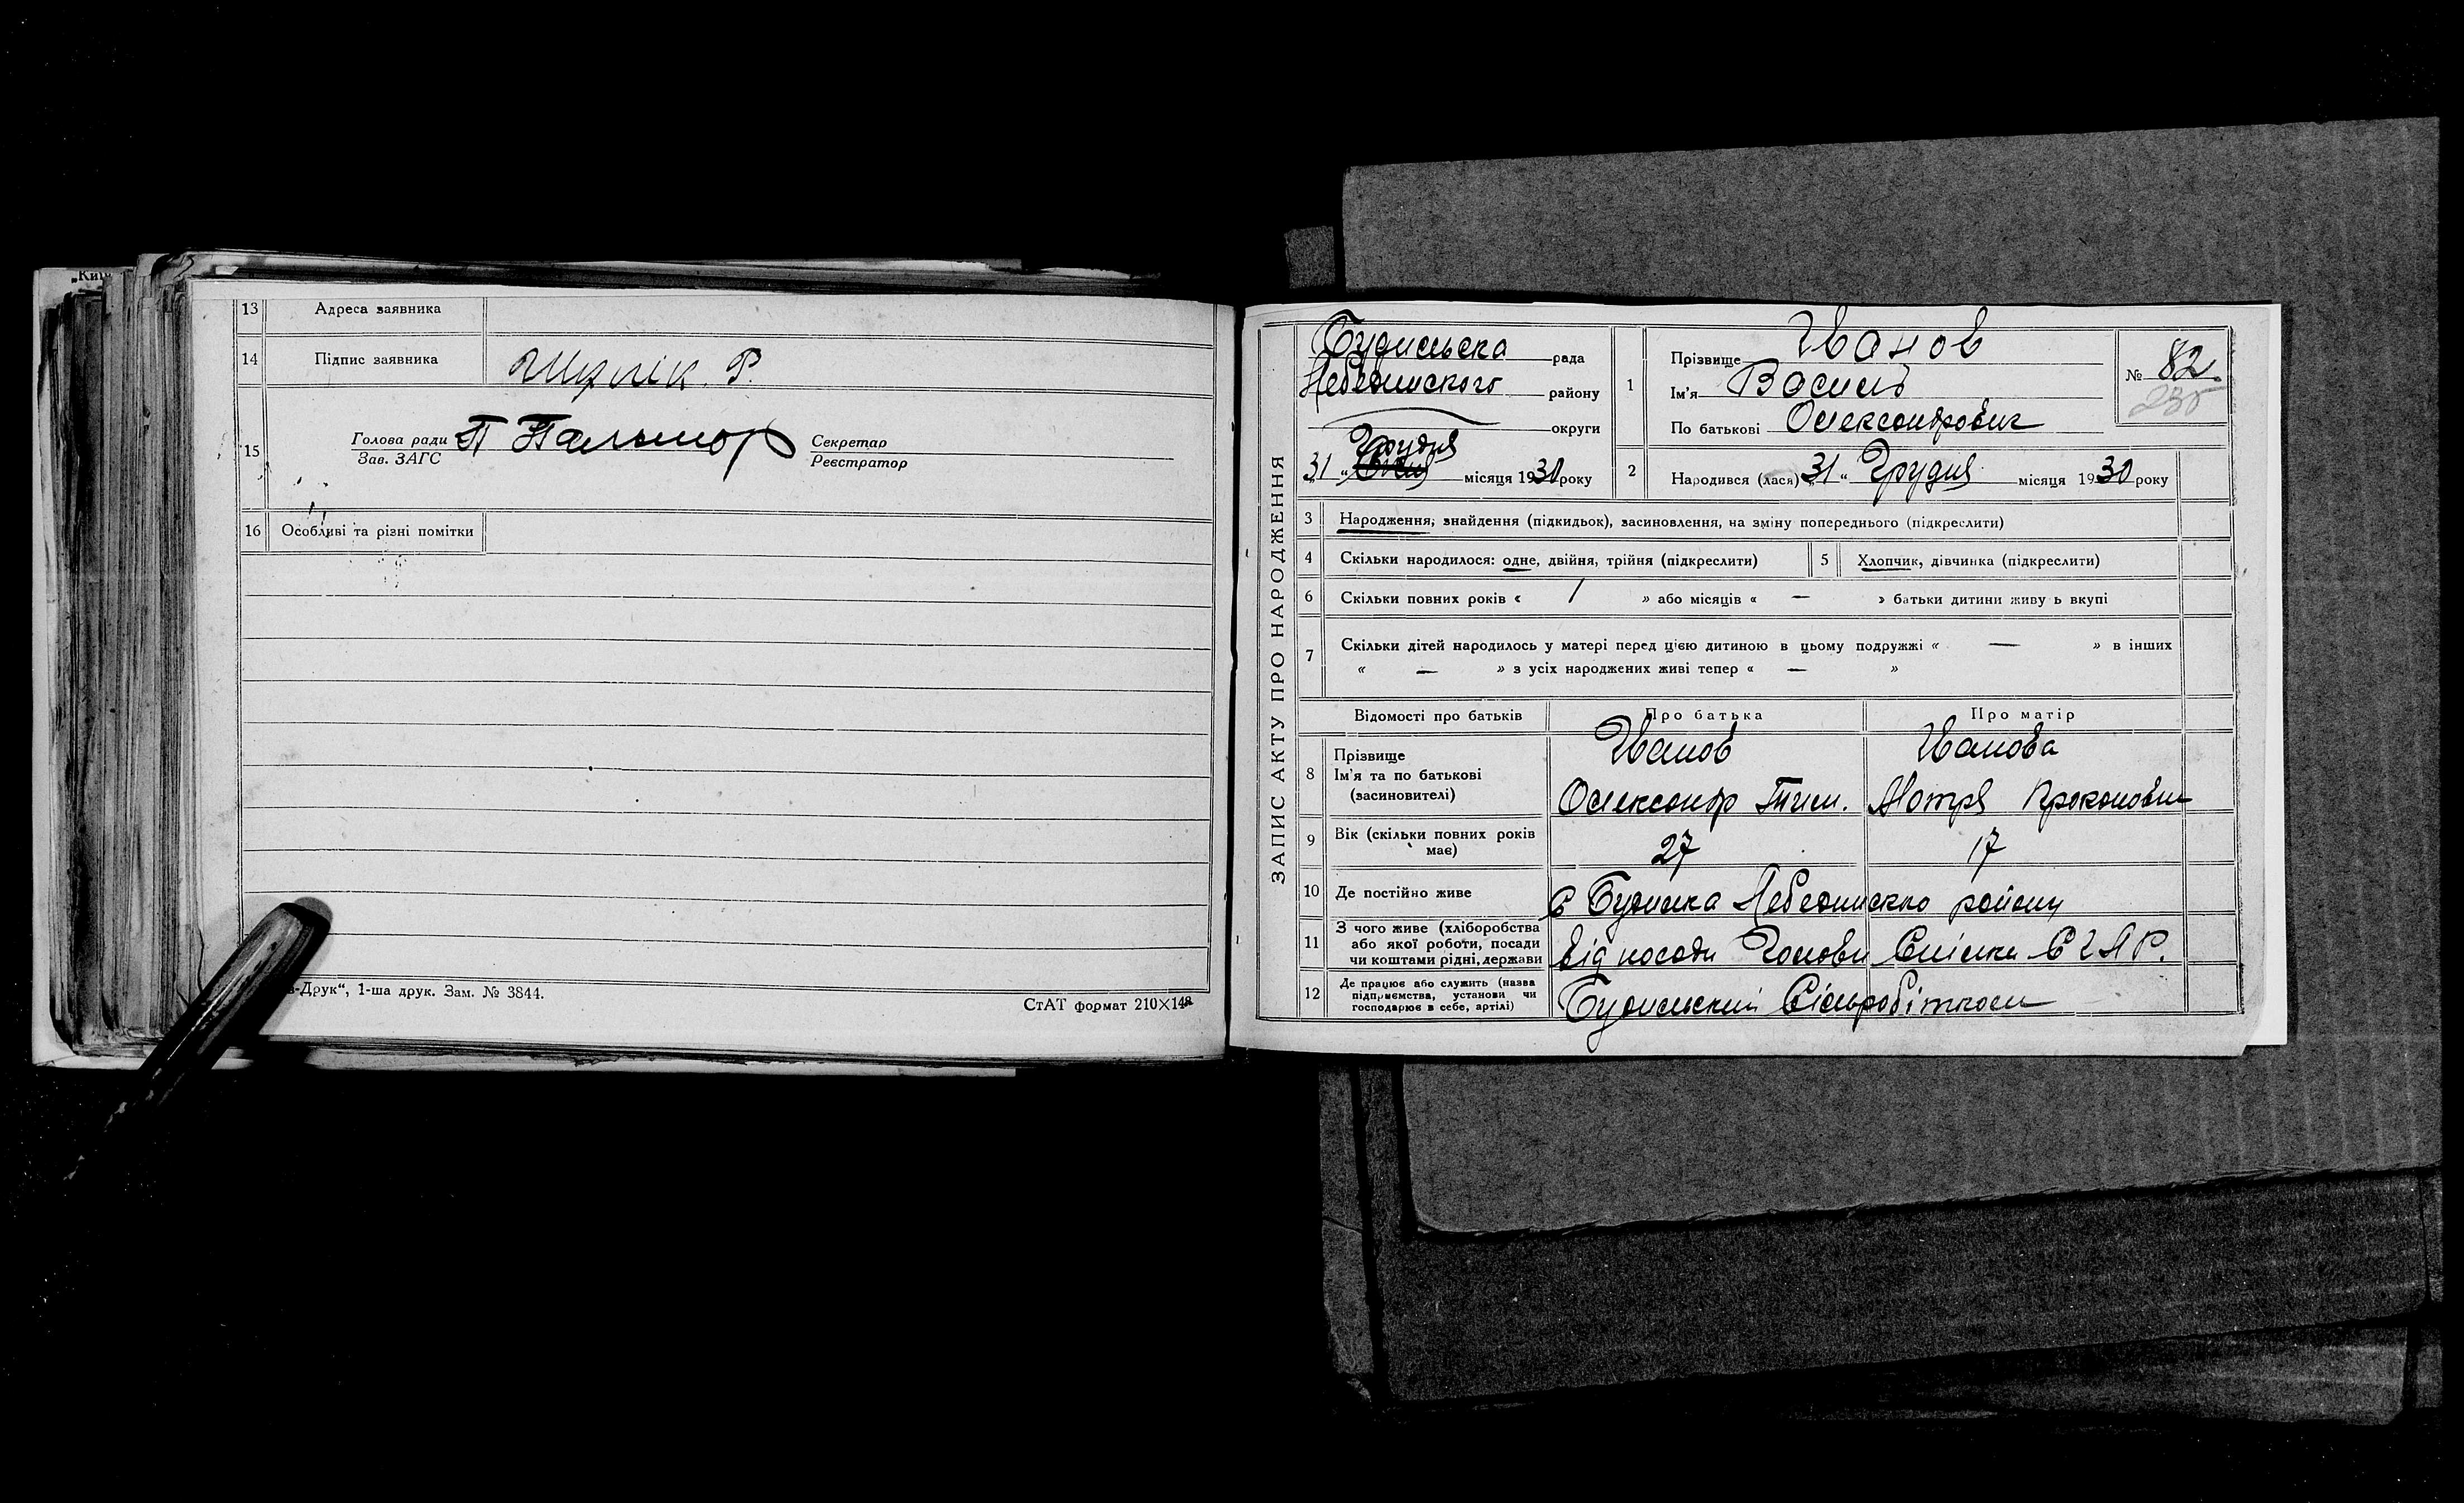 „Київ
13 Адреса заявника
14 Підпис заявника Р.
15 Голова ради П Пальмор Секретар
Зав. ЗАГС Реєстратор
16 Особливі та різні помітки
-Друк“, 1-ша друк. Зам. № 3844.
СтАТ формат 210×148
ЗАПИС АКТУ ПРО НАРОДЖЕННЯ
Будильська рада
Лебединского району
округи
Грудня
31 “ місяця 1930 року
1 Прізвище Іванов
Ім'я Василь
По батькові Олександрович
№ 82
235
2 Народився (лася) „31“ Грудня місяця 1930 року
3 Народження, знайдення (підкидьок), засиновлення, на зміну попереднього (підкреслити)
4 Скільки народилося: одне, двійня, трійня (підкреслити) 5 Хлопчик, дівчинка (підкреслити)
6 Скільки повних років « 1 » або місяців « — » батьки дитини живу ь вкупі
7 Скільки дітей народилось у матері перед цією дитиною в цьому подружжі « — » в інших
« — » з усіх народжених живі тепер « — »
Відомості про батьків Про батька Про матір
8 Прізвище Іванов Іванова
Ім'я та по батькові
(засновителі) Олександр Тим. Мотря Прокопович
9 Вік (скільки повних років
має) 27 17
10 Де постійно живе С Будилка Лебединско району
11 З чого живе (хліборобства
або якої роботи, посади
чи коштами рідні, держави від посади Голови Спілки С Г Л Р.
12 Де працює або служить (назва
підприємства, установи чи
господарює в себе, артілі) Будильский Сільробітком